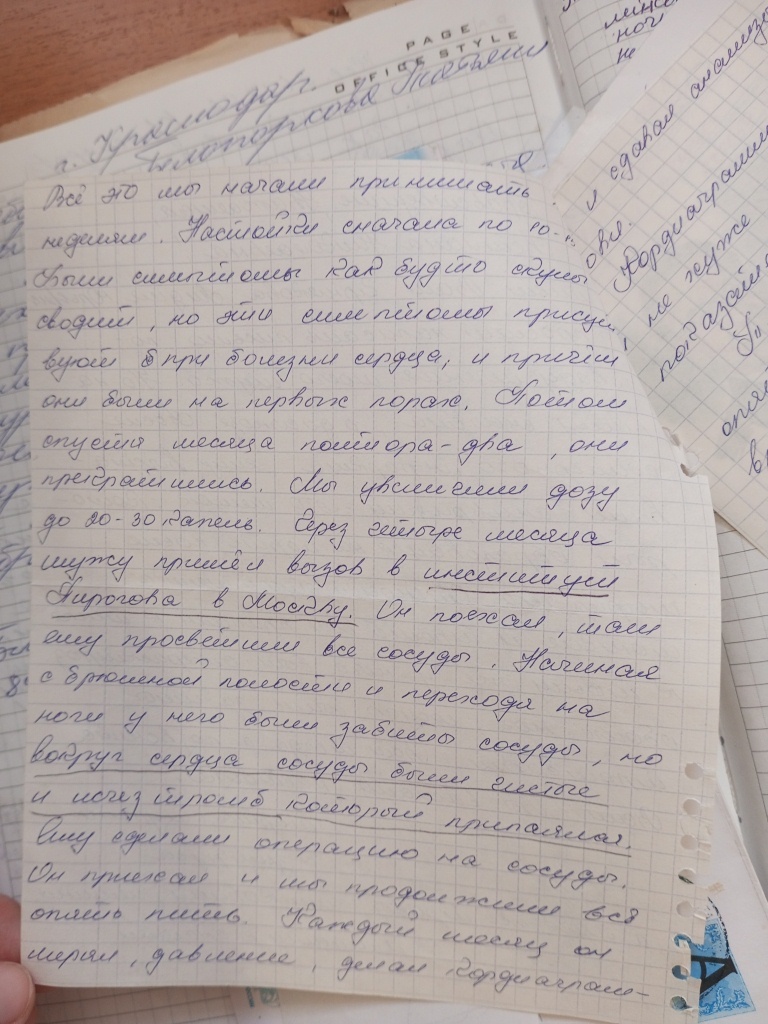 PAGE
OFFICE STYLE
г. Краснодар.
Всё это мы начали принимать
неделям. Настойки сначала по 10-
были симптомы как будто скулы
сводит, но эти симптомы присут
вуют при болезни сердца, и причём
они были на первых порах. Потом
спустя месяца полтора-два, они
прекратились. Мы увеличили дозу
до 20-30 капель. Через четыре месяца
мужу пришёл вызов в институт
Пирогова в Москву. Он поехал, там
ему просветили все сосуды. Начиная
с брюшной полости и переходя на
ноги у него были забиты сосуды, но
вокруг сердца сосуды были чистые
и исчез тромб который припаялся.
Ему сделали операцию на сосуды.
Он приехал и мы продолжили всё
опять пить. Каждый месяц он
мерял, давление, делал кордиаграм-
и сдавал анализы
Кордиаграмм
не хуже
показат